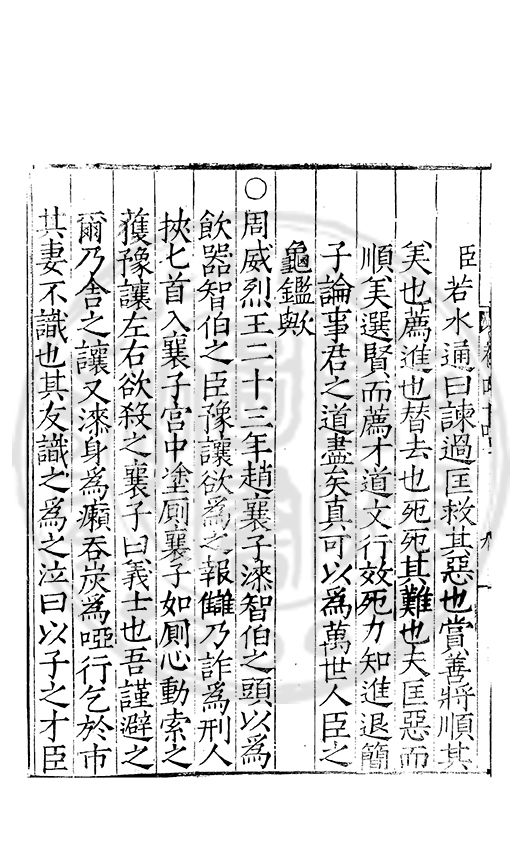 臣若水通曰諫過匡救其惡也賞善將順其
羙也薦進也替去也死死其難也夫匡惡而
順羙選賢而薦才道文行效死力知進退簡
子論事君之道盡矣真可以爲萬世人臣之
龜鑑歟
○周威烈王二十三年趙襄子漆智伯之頭以爲
飲器智伯之臣豫讓欲爲之報讎乃詐爲刑人
挾匕首入襄子宮中塗厠襄子如厠心動索之
獲豫讓左右欲殺之襄子曰義士也吾謹避之
爾乃舎之讓又漆身爲癩吞炭爲啞行乞於市
其妻不識也其友識之爲之泣曰以子之才臣